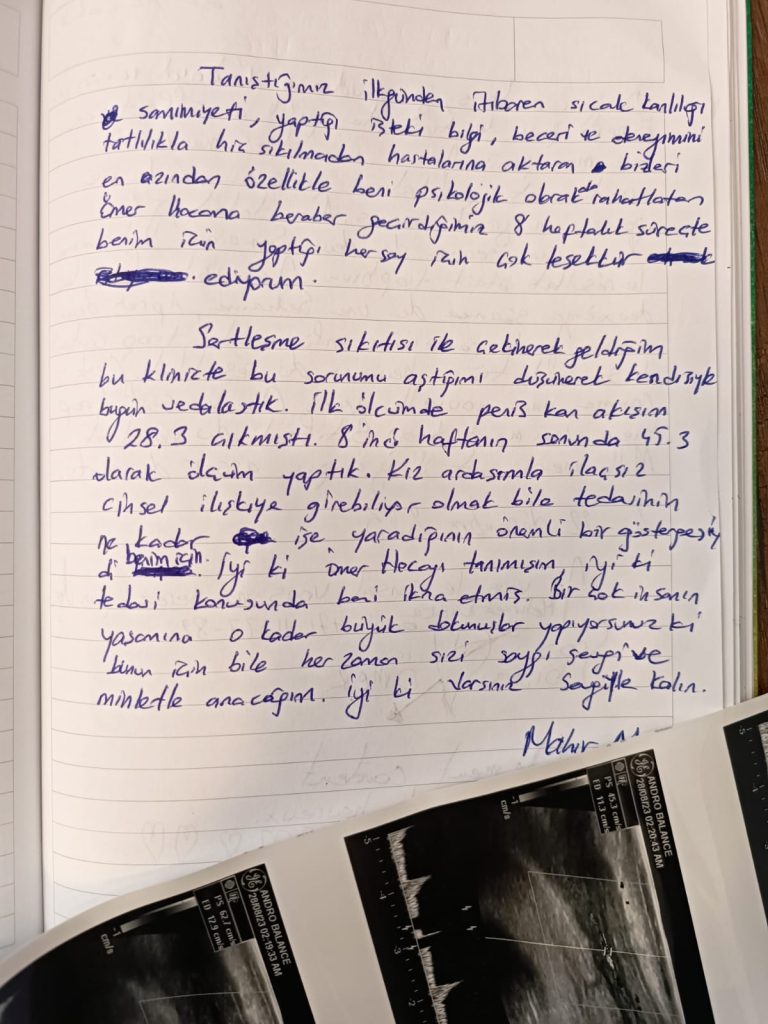 Tanıştığımız ilkgünden itibaren sıcak kanlılığı
samimiyeti, yaptığı işteki bilgi, beceri ve deneyimini
tatlılıkla hiç sıkılmadan hastalarına aktaran bizleri
en azından özellikle beni psikolojik olarak da rahatlatan
Ömer Hocama beraber geçirdiğimiz 8 haftalık süreçte
benim için yaptığı herşey için çok teşekkür
ediyorum.
Sertleşme sıkıtısı ile çekinerek geldiğim
bu klinikte bu sorunumu aştığımı düşünerek kendisiyle
bugün vedalaştık. İlk ölçümde penis kan akışım
28.3 çıkmıştı. 8'inci haftanın sonunda 45.3
olarak ölçüm yaptık. Kız ardaşımla ilaçsız
cinsel ilişkiye girebiliyor olmak bile tedavinin
ne kadar işe yaradığının önemli bir göstergesiy
di benim için. İyi ki Ömer Hocayı tanımışım, iyi ki
tedavi konusunda beni ikna etmiş. Bir çok insanın
yaşamına o kadar büyük dokunuşlar yapıyorsunuz ki
bunun için bile her zaman sizi saygı sevgi ve
minnetle anacağım. İyi ki varsınız Sevgiyle kalın.
Mahir
ANDRO BALANCE
28/08/23 02:20:43 AM
PS 45.3 cm/s
ED 11.3 cm/s
cm/s
ANDRO BALANCE
28/08/23 02:19:33 AM
PS 62.7 cm/s
ED 17.9 cm/s
cm/s